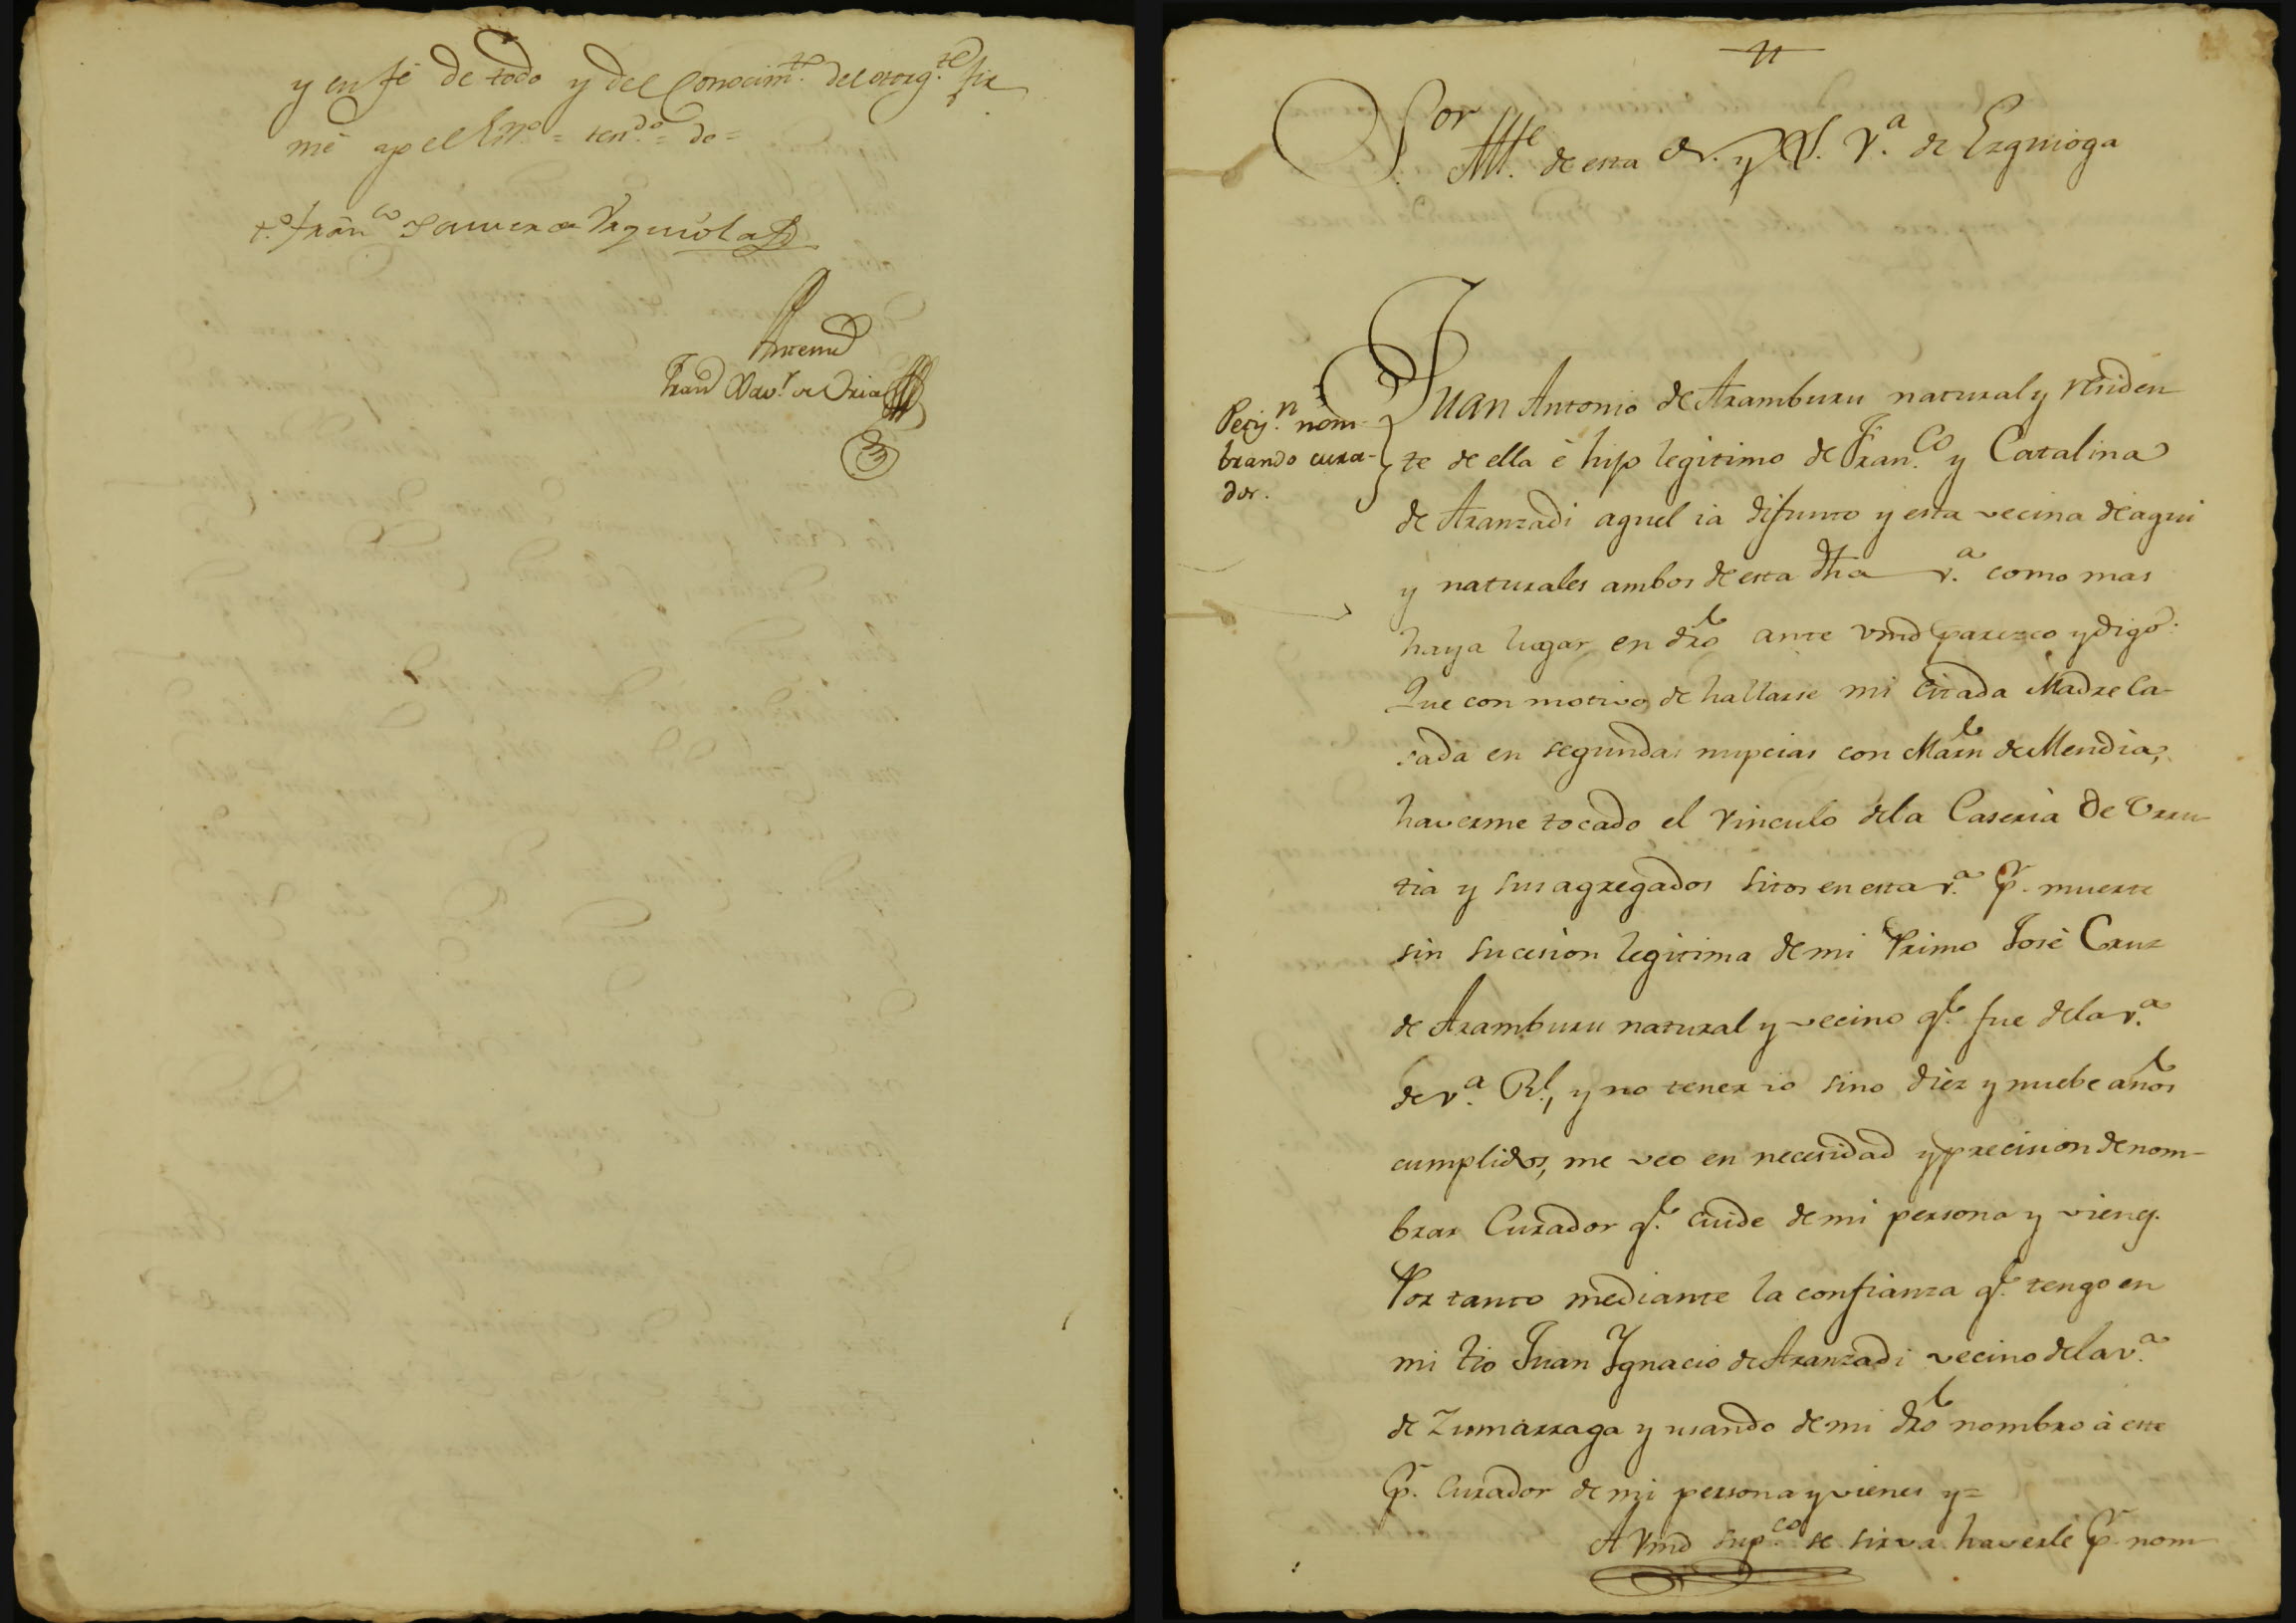 y en fé de todo y del conocim.to del otorg.te fir
mé yo el Ess.no = ten.do = do =
t.o Fran.co Xavier de Yrquiola
Antemi
Fran.co Xav.r de Oria
Sor
Alc.e de esta N. y L. V.a de Ezquioga
Petiz.n nom-
brando cura-
dor.
Juan Antonio de Aramburu natural y residen
te de ella è hijo legitimo de Fran.co y Catalina
de Aranzadi aquel ia difunto y esta vecina de aqui
y naturales ambos de esta dha v.a como mas
haya lugar en dro ante vmd parezco y digo:
Que con motivo de hallarse mi citada Madre Ca-
sada en segundas nupcias con Marn de Mendia,
haverme tocado el vinculo dela Caseria de Urru
tia y sus agregados sitos en esta v.a p.r muerte
sin sucesion legitima de mi Primo José Cruz
de Aramburu natural y vecino q.e fue dela v.a
de V.a R.l, y no tener io sino diez y nuebe años
cumplidos, me veo en necesidad y precision de nom-
brar Curador q.e cuide de mi persona y vienes.
Por tanto mediante la confianza q.e tengo en
mi tio Juan Ygnacio de Aranzadi vecino dela v.a
de Zumarraga y usando de mi dro nombro à este
p.r Curador de mi persona y vienes y=
A Vmd sup.co se sirva haverle p.r nom